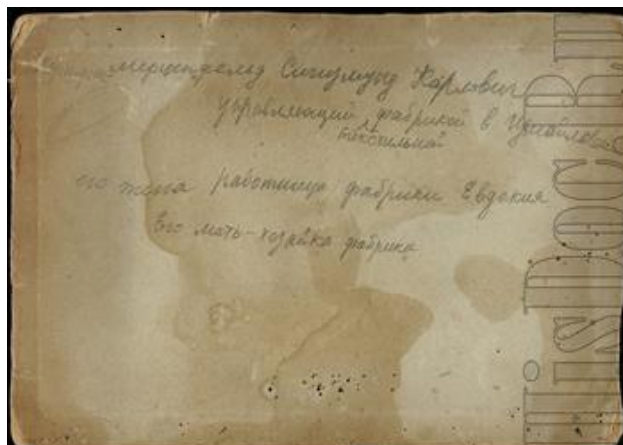 Мерценфельд Сигизмунд Карлович
управляющий фабрикой в Измайлово
текстильной
его жена работница фабрики Евдокия
Его мать-хозяйка фабрики
His Doc.RU